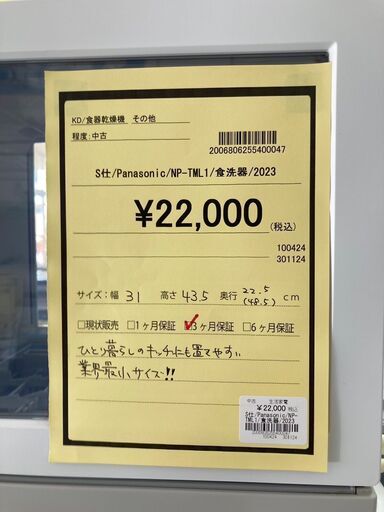 KD/食器乾燥機 その他
程度:中古
2006806255400047
S仕/Panasonic/NP-TML1/食洗器/2023
¥22,000(税込)
100424
301124
サイズ:幅 31 高さ 43.5 奥行 22.5 (48.5) cm
□現状販売 □1ヶ月保証 ☑3ヶ月保証 □6ヶ月保証
ひとり暮らしのキッチンにも置てやすい
業界最小サイズ!!
中古 生活家電
¥22,000 税込
S仕/Panasonic/NP-
TML1/食洗器/2023
2006806255400047
100424 301124